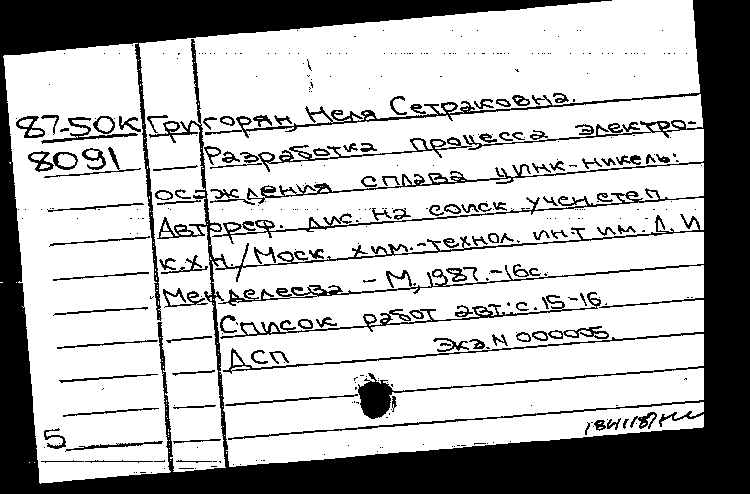 87-50К Григорян, Неля Сетраковна.
8091 Разработка процесса электро-
осаждения сплава цинк-никель:
Автореф. дис. на соиск. учен. степ.
к.х.н. / Моск. хим.-технол. ин.т им. Д. И
Менделеева. - М, 1987. - 16с.
Список работ авт.: с. 15-16.
ДСП Экз. N 000005.
5